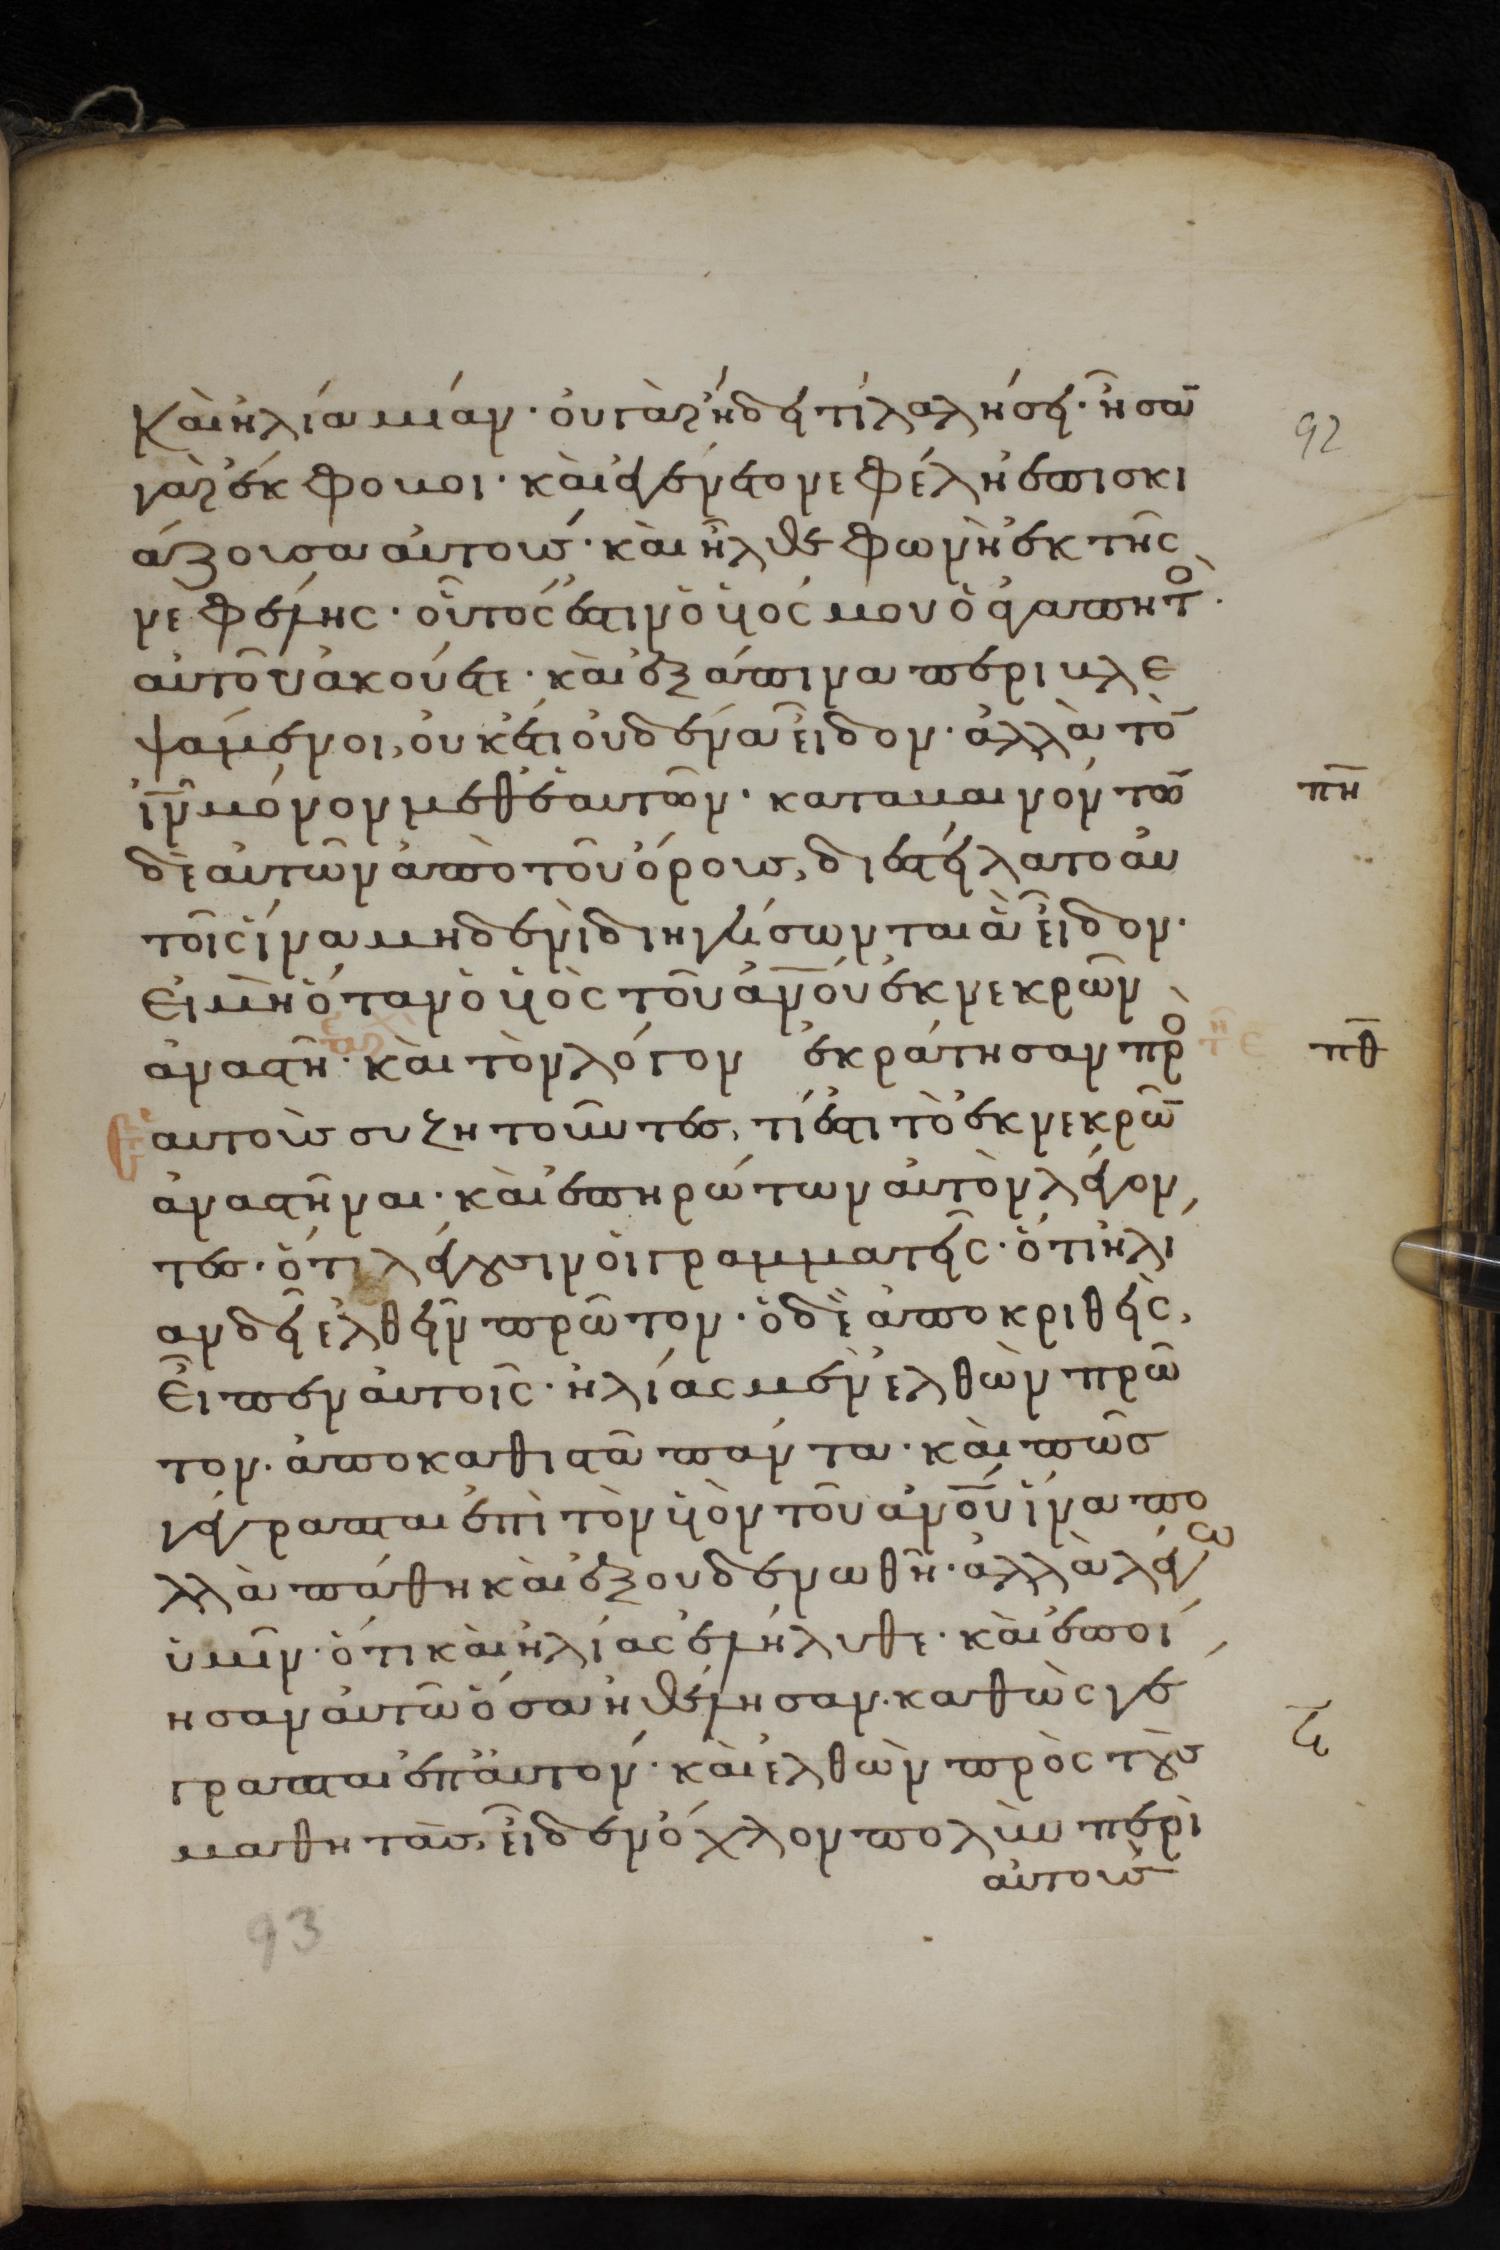 92
καὶ ἠλία μίαν· οὐ γὰρ ἤδει τί λαλήσει· ἦσαν
γὰρ ἔκφοβοι· καὶ ἐγένετο νεφέλη ἐπισκι
άζουσα αὐτούς· καὶ ἦλθε φωνὴ ἐκ τῆς
νεφέλης· οὗτός ἐστιν ὁ υἱός μου ὁ ἀγαπητὸ·
αὐτοῦ ἀκούετε· καὶ ἐξάπινα περιβλε
ψάμενοι, οὐκέτι οὐδένα εἶδον· ἀλλὰ τὸν
ιν̅ μόνον μεθ' ἑαυτῶν· καταβαινόντων
πη̅
δὲ αὐτῶν ἀπὸ τοῦ ὄρους, διεστείλατο αὐ
τοῖς ἵνα μηδενὶ διηγήσωνται ἃ εἶδον·
εἰ μὴ ὅταν ὁ υἱὸς τοῦ ἀνου̅ ἐκ νεκρῶν
ἀναστῆ· καὶ τὸν λόγον ἐκράτησαν πρὸ
πθ̅
αυτοὺς συζητοῦντες, τί ἐστι τὸ ἐκ νεκρῶν
ἀναστῆναι· καὶ ἐπηρώτων αὐτὸν λέγον
τες· ὅτι λέγουσιν οἱ γραμματεῖς· ὅτι ἠλί
αν δεῖ ἐλθεῖν πρῶτον· ὁ δὲ ἀποκριθεὶς,
εἶπεν αὐτοῖς· ἠλίας μὲν ἐλθὼν πρῶ
τον· ἀποκαθιστᾶ πάντα· καὶ πῶς
γέγραπται ἐπὶ τὸν υἱὸν τοῦ ἀνου̅ ἵνα πο
λλὰ πάθη καὶ ἐξουδενωθῆ· ἀλλὰ λέγω
ὑμῖν· ὅτι καὶ ἠλίας ἐλήλυθε· καὶ ἐποί
ησαν αὐτῶ ὅσα ἠθέλησαν· καθὼς γέ
γραπται ἐπ' αὐτόν· καὶ ἐλθὼν πρὸς τοὺς
μαθητὰς, εἶδεν ὄχλον πολὺν περὶ
αὐτοὺς
93